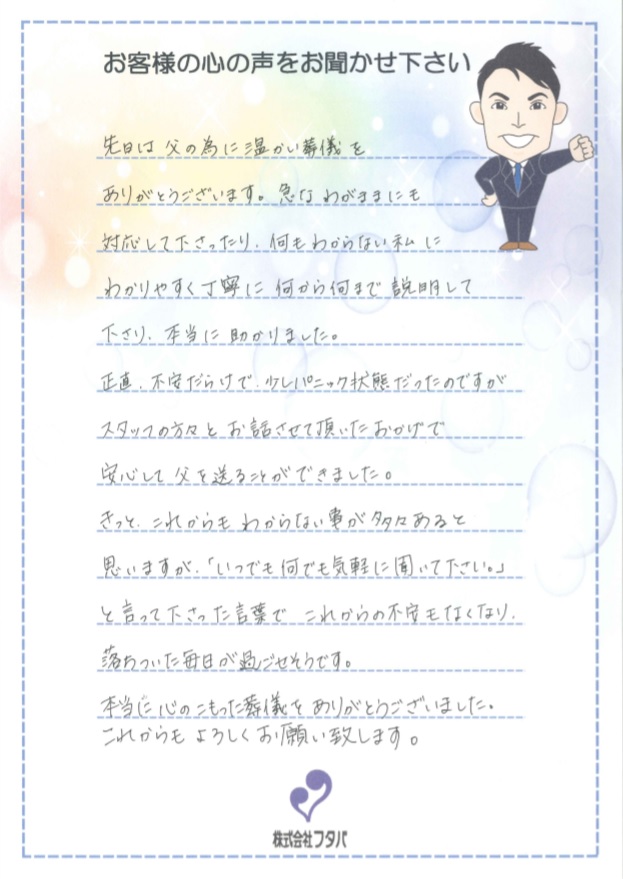 お客様の心の声をお聞かせ下さい
先日は 父の為に温かい葬儀を
ありがとうございます。急な わがままにも
対応して下さったり、何もわからない私に
わかりやすく丁寧に 何から何まで 説明して
下さり、本当に 助かりました。
正直、不安だらけで、少しパニック状態だったのですが
スタッフの方々と お話させて頂いたおかげで
安心して 父を送ることができました。
きっと、これからも わからない事が多々あると
思いますが、「いつでも何でも気軽に聞いて下さい。」
と言って下さった言葉で これからの不安もなくなり、
落ちついた毎日が過ごせそうです。
本当に 心のこもった葬儀を ありがとうございました。
これからも よろしくお願い致します。
株式会社フタバ